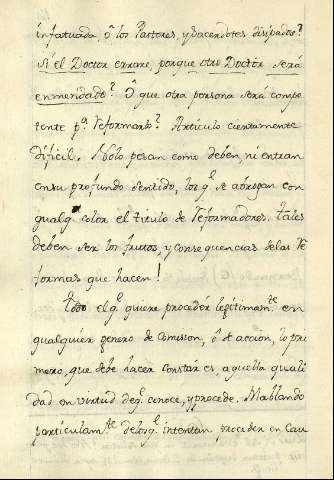 infatuada, ó los Pastores, y Sacerdotes disipados?
Si el Doctor errare, porque otro Doctor será
enmendado? O que otra persona será compe
tente pª reformarlo? Articulo ciertamente
dificil. Nolo pesan como deben, ni entran
en su profundo sentido, los qᵉ se abrogan con
qualqʳ color el titulo de reformadores. tales
deben ser los frutos, y consequencias delas Re
formas que hacen!
Todo el qᵉ quiere proceder legitimamᵗᵉ en
qualquier genero de Comision, ó de accion, lo pri
mero, que debe hacer constar es, aquella quali
dad en virtud deqᵉ conoce, y procede. Hablando
particularmᵗᵉ delosqᵉ intentan proceder en Cau